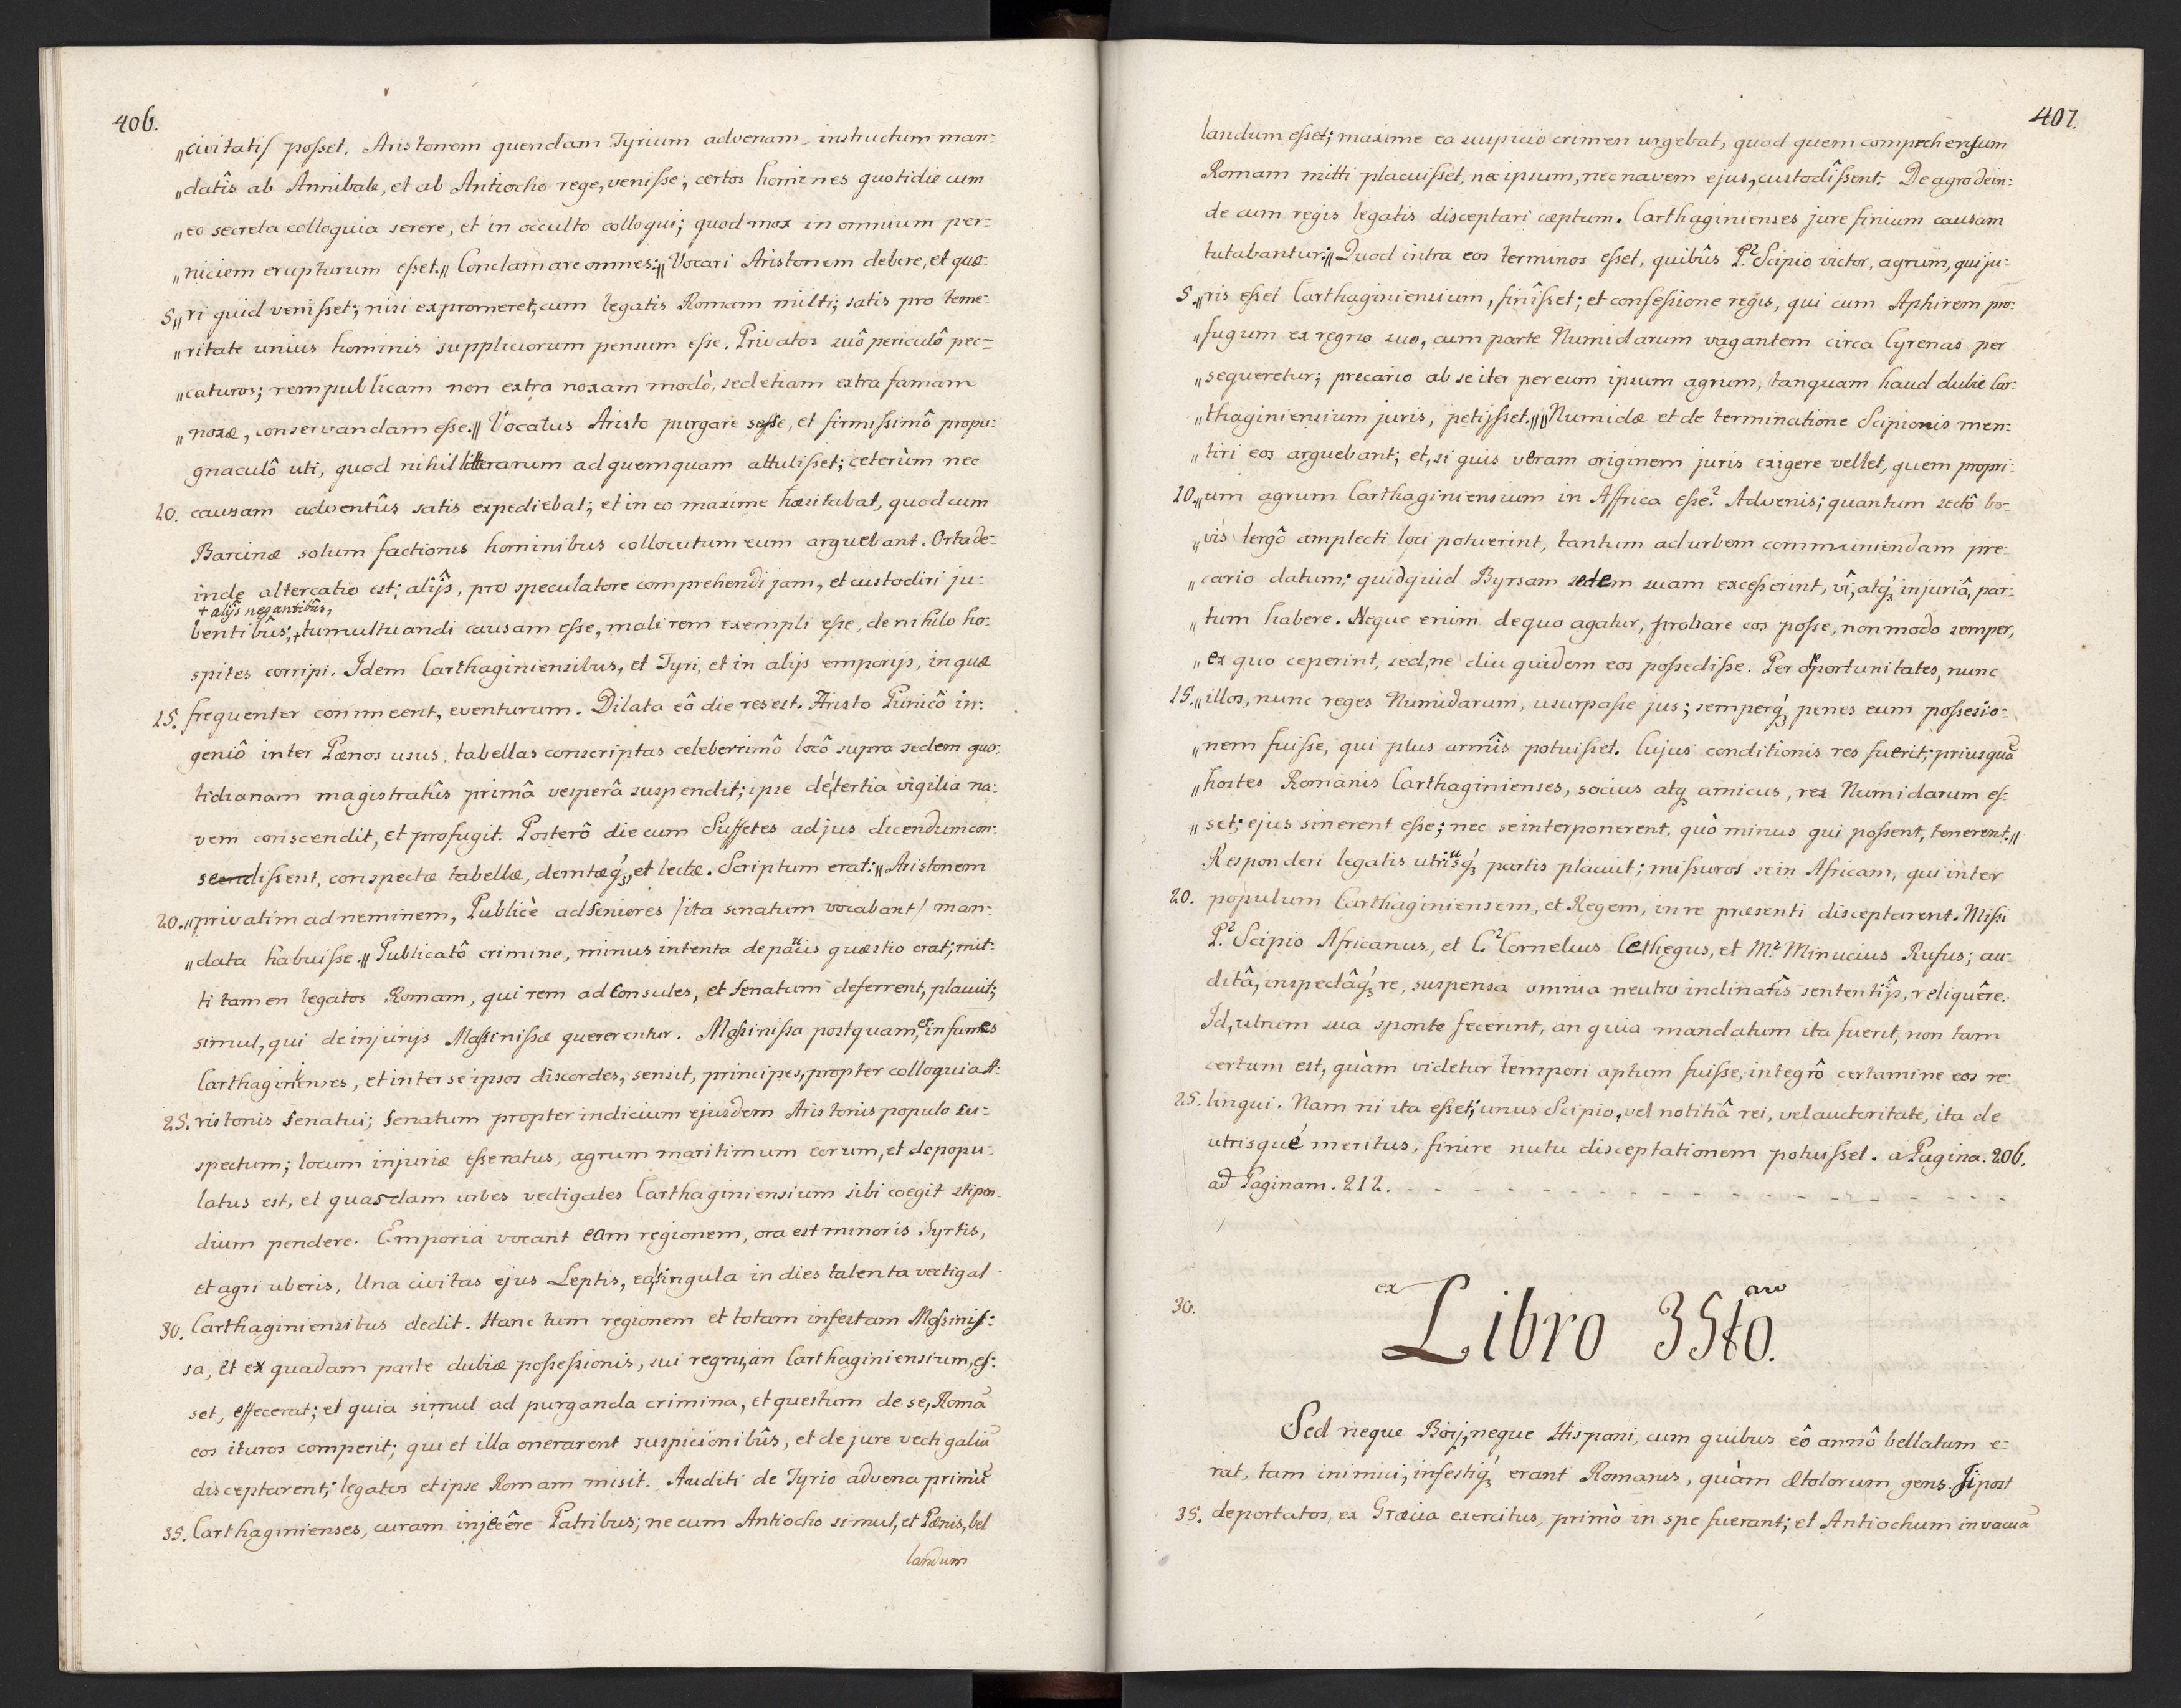 406.
„civitatis posset. Aristonem quendam Tyrium advenam, instructum man-
„datîs ab Annibale, et ab Antiocho rege, venisse; certos homines quotidie cum
„eo secreta colloquia serere, et in occulto colloqui; quod mox in omnium per-
„niciem erupturum esset.„ Conclamare omnes: „Vocari Aristonem debere, et quæ-
5.„ri quid venisset; nisi expromeret, cum legatis Romam mitti; satis pro teme-
„ritate unius hominis suppliciorum pensum esse. Privatos suô periculô pec-
„caturos; rempublicam non extra noxam modò, sed etiam extra famam
„noxæ, conservandam esse.„ Vocatus Aristo purgare sesse, et firmissimô propu-
gnaculô uti, quod nihil litterarum ad quemquam attulisset; ceterùm nec
10. causam adventûs satis expediebat; et in eo maxime hæsitabat, quod cum
Barcinæ solum factionis hominibus collocutum eum arguebant. Orta de-
inde altercatio est; alijs, pro speculatore comprehendi jam, et custodiri ju-
+ alijs negantibûs,
bentibûs; + tumultuandi causam esse, mali rem exempli esse, de nihilo ho-
spites corripi. Idem Carthaginiensibus, et Tyri, et in alijs emporijs, in quæ
15. frequenter commeent, eventurum. Dilata eô die res est. Aristo Punicô in-
geniô inter Pœnos usus, tabellas conscriptas celeberrimô locô supra sedem quo-
tidianam magistratûs primâ vesperâ suspendit; ipse de tertia vigilia na-
vem conscendit, et profugit. Posterô die cum Suffetes ad jus dicendum con-
sendissent, conspectæ tabellæ, demtæq́ꝫ, et lectæ. Scriptum erat: „Aristonem
20.„privatim ad neminem, Publicè ad seniores /ita senatum vocabant/ man-
„data habuisse.„ Publicatô crimine, minus intenta de paucis quæstio erat; mit-
ti tamen legatos Romam, qui rem ad Consules, et Senatum deferrent, placuit;
simul, qui de injurijs Massinissæ quererentur. Massinissa postquam, et infames
Carthaginienses, et inter se ipsos discordes, sensit, principes, propter colloquia A-
25. ristonis Senatui; Senatum propter indicium ejusdem Aristonis populo su-
spectum; locum injuriæ esse ratus, agrum maritimum eorum, et depopu-
latus est, et quasdam urbes vectigales Carthaginiensium sibi coegit stipen-
dium pendere. Emporia vocant eam regionem, ora est minoris Syrtis,
et agri uberis, Una civitas ejus Leptis, ea singula in dies talenta vectigal
30. Carthaginiensibus dedit. Hanc tum regionem et totam infestam Massinis-
sa, et ex quadam parte dubiæ possessionis, sui regni, an Carthaginiensium, es-
set, effecerat; et quia simul ad purganda crimina, et questum de se, Romã
eos ituros comperit; qui et illa onerarent suspicionibûs, et de jure vectigaliũ
disceptarent; legatos et ipse Romam misit. Auditi de Tyrio advena primũ
35. Carthaginienses, curam injecêre Patribus; ne cum Antiocho simul, et Pœnis, bel
landum
407.
landum esset; maxime ea suspicio crimen urgebat, quod quem comprehensum
Romam mitti placuisset, nec ipsum, nec navem ejus, custodîssent. De agro dein-
de cum regis legatis disceptari cæptum. Carthaginienses jure finium causam
tutabantur: „Quod intra eos terminos esset, quibûs P.² Scipio victor, agrum, qui ju-
5.„ris esset Carthaginiensium, finîsset; et confessione regis, qui cum Aphirem pro-
„fugum ex regno suo, cum parte Numidarum vagantem circa Cyrenas per
„sequeretur; precario ab se iter per eum ipsum agrum, tanquam haud dubie Car-
„thaginiensium juris, petijsset.„ „Numidæ et de terminatione Scipionis men-
„tiri eos arguebant; et, si quis veram originem juris exigere vellet, quem propri-
10.„um agrum Carthaginiensium in Affrica esse? Advenis; quantum sectô bo-
„vis tergô amplecti loci potuerint, tantum ad urbem communiendam pre-
„cario datum; quidquid Byrsam sedem suam excesserint, vî, atq́ꝫ injuriâ, par-
„tum habere. Neque enim de quo agatur, probare eos posse, non modo semper,
„ex quo ceperint, sed, ne diu quidem eos possedisse. Per opportunitates, nunc
15.„illos, nunc reges Numidarum, usurpasse jus; semperq́ꝫ penes eum possesio-
„nem fuisse, qui plus armîs potuisset. Cujus conditionis res fuerit; priusquã
„hostes Romanis Carthaginienses, socius atqꝫ amicus, rex Numidarum es-
„set; ejus sinerent esse; nec se interponerent, quò minus qui possent, tenerent.„
Responderi legatis utriusq́ꝫ partis placuit; missuros se in Africam, qui inter
20. populum Carthaginiensem, et Regem, in re præsenti disceptarent. Missi
P.² Scipio Africanus, et C.² Cornelius Cethegus, et M.² Minucius Rufus; au-
ditâ, inspectâq́ꝫ re, suspensa omnia neutro inclinatîs sententijs, reliquêre.
Id, utrum sua sponte fecerint, an quia mandatum ita fuerit, non tam
certum est, quàm videtur tempori aptum fuisse, integrô certamine eos re-
25. linqui. Nam ni ita esset, unus Scipio, vel notitiâ rei, vel auctoritate, ita de
utrisque meritus, finire nutu disceptationem potuisset. a Pagina. 206.
ad Paginam. 212. - - - - - - - - - - - - - - - - -
30. ex Libro 35to.
Sed neque Boij, neque Hispani, cum quibus eô annô bellatum e-
rat, tam inimici, infestiq́ꝫ erant Romanis, quàm Ætolorum gens. Ii post
35. deportatos, ex Græcia exercitus, primò in spe fuerant; et Antiochum in vacuã